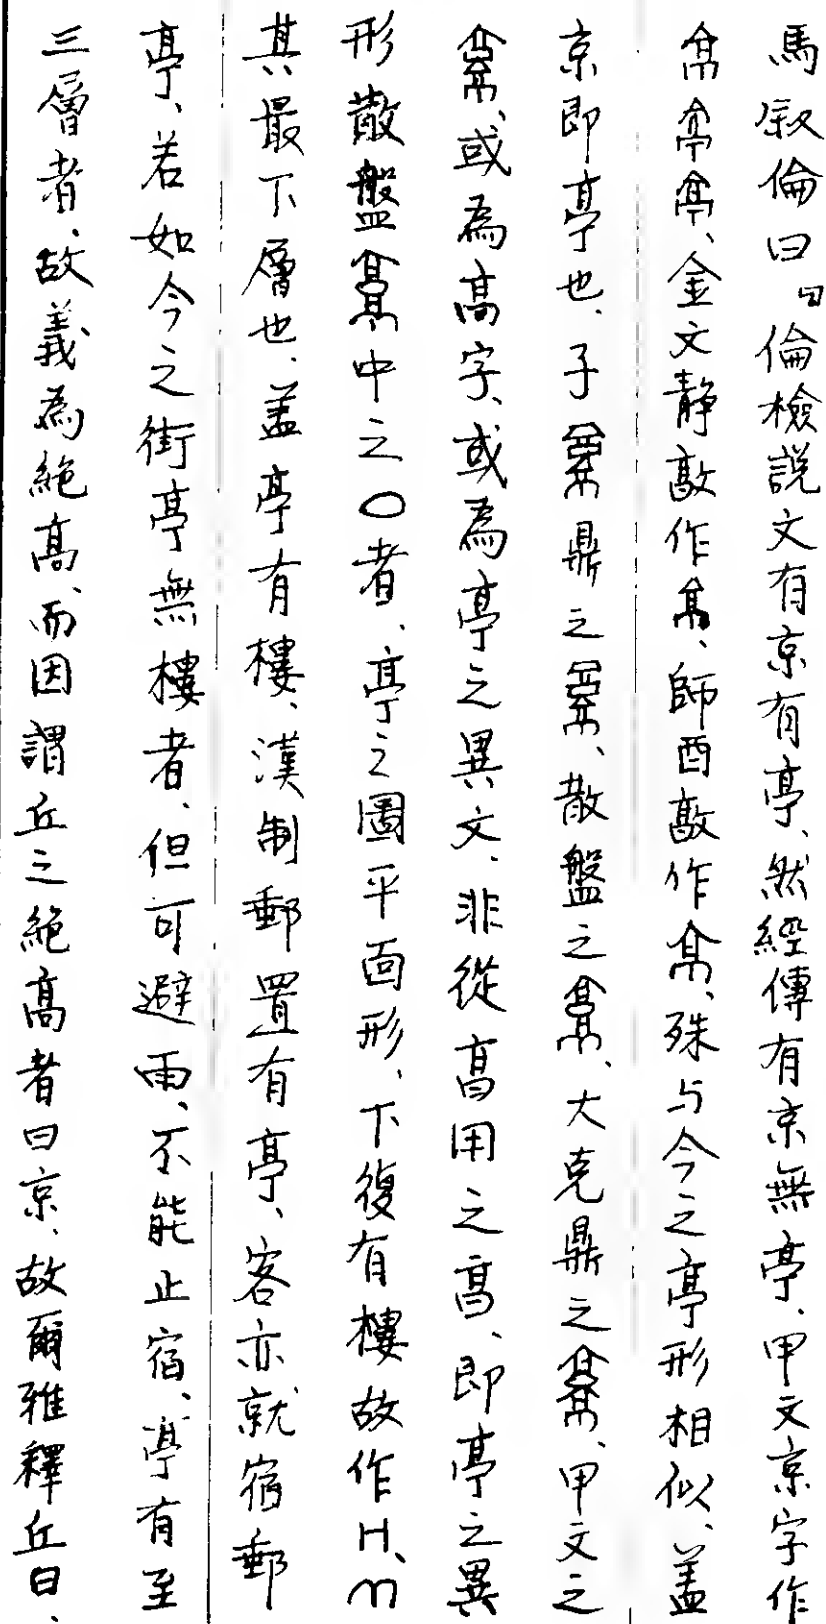 馬叙倫曰。倫檢説文有京有亭、然經傳有京無亭、甲文京字作
、金文静敦作、師酉敦作、殊与今之亭形相似、蓋
京即亭也、子鼎之、散盤之、大克鼎之、甲文之
、或為高字、或為亭之異文、非從高用之高、即亭之異
形散盤中之〇者、亭之圖平面形、下復有樓故作H、
其最下層也、蓋亭有樓、漢制郵置有亭、客亦就宿郵
亭、若如今之街亭無樓者、但可避雨、不能止宿、亭有至
三層者、故義為絶高、而因謂丘之絶高者曰京、故爾雅釋丘曰、